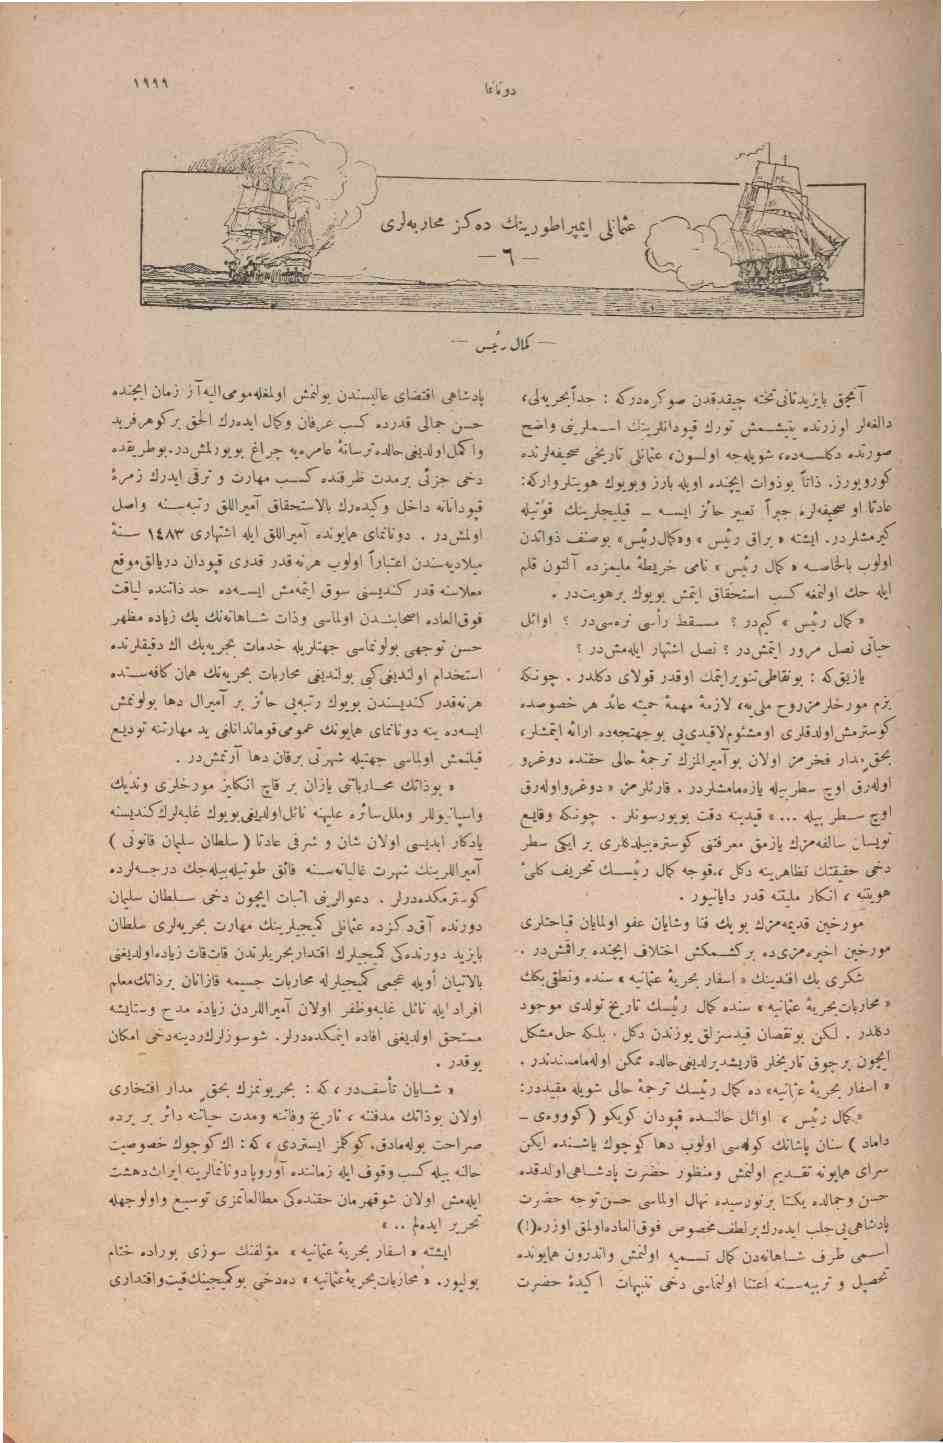 دوننما
١٩٩٩
عثمانلی ایمپراطورینك ده‌كز محاربه‌لری
— ٦ —
— كمال رئیس —
آنجق بایزید ثانی تخته چیقدقدن صوكره‌دركه : جداً بحریه‌لی،
دالغه‌لر اوزرنده یتیشـمش تورك قپودانلرینك اسـملرینی واضح
صورتده دكلسـه‌ده، شویله‌جه اولسون، عثمانلی تاریخی صحیفه‌لرنده
كورویورز. ذاتاً بوذوات ایچنده اویله بارز وبویوك هویتلر واركه:
عادتا او صحیفه‌لره جبراً تعبیر جائز ایسـه ـ قیلیجلرینك قوتیله
كیرمشلردر. ایشته « براق رئیس » و«كمال رئیس» بوصنف ذواتدن
اولوب بالخاصـه « كمال رئیس » نامی خریطۀ ملیمزده آلتون قلم
ایله حك اولنمغه كسب استحقاق ایتمش بویوك برهویت‌در .
« كمال رئیس » كیم‌در ؟ مسـقط رأسی نره‌سی‌در ؟ اوائل
حیاتی نصل مرور ایتمش‌در ؟ نصل اشتهار ایله‌مش‌در ؟
یازیق‌كه : بونقاطی تنویر ایتمك اوقدر قولای دكلدر . چونكه
بزم مورخلرمز روح ملی‌یه، لازمۀ مهمۀ حمیته عائد هر خصوصده
كوسترمش اولدقلری اومشئوم لاقیدی‌یی بوجهتجه‌ده ارائه ایتمشلر،
بحق مدار فخرمز اولان بو آمیرالمزك ترجمۀ حالی حقنده دوغرو
اوله‌رق اوچ سطر بیله یازه‌مامشلردر . قارئلرمز « دوغرو اوله‌رق
اوچ سـطر بیله ... » قیدینه دقت بویورسونلر . چونكه وقایع
نویسان سالفه‌مزك یازمق معرفتنی كوستره‌بیلدكلری بر ایكی سطر
دخی حقیقتك تظاهرینه دكل ،، قوجه كمال رئیسـك تحریف كلیٔ
هویتنه ، انكار ملیتنه قدر دایانیور .
مورخین قدیمه‌مزك بو پك فنا وشایان عفو اولمایان قباحتلری
مورخین اخیره‌مزی‌ده بر كشـمكش اختلاف ایچنده براقمش‌در .
شكری بك افندینك « اسفار بحریۀ عثمانیه » سنده ونطقی بكك
« محاربات بحریۀ عثمانیه » سنده كمال رئیسك تاریخ تولدی موجود
دكلدر . لكن بونقصان قیدسزلق یوزندن دكل . بلكه حل مشكل
ایچون برچوق تاریخلر قاریشدیرلدیغی حالده ممكن اوله‌مامسندندر .
« اسفار بحریۀ عثمانیه» ده كمال رئیسك ترجمۀ حالی شویله مقیددر:
«كمال رئیس ، اوائل حالنـده قپودان كویكو ( كووه‌ی ـ
داماد ) سنان پاشانك كوله‌سی اولوب دها كوچوك یاشـنده ایكن
سرای همایونه تقـدیم اولنمش ومنظور حضرت پادشـاهی اولدقده
حسن وجمالده یكتا برنورسیده نهال اولماسی حسن توجه حضرت
پادشاهی‌یی جلب ایده‌رك برلطف مخصوص فوق‌العاده اولمق اوزره(!)
اسـمی طرف شـاهانه‌دن كمال تسـمیه اولنمش واندرون همایونده
تحصیل و تربیه‌سـنه اعتنا اولنماسی دخی تنبیهات اكیدۀ حضرت
پادشاهی اقتضای عالیسندن بولنمش اولمغله مومی‌الیه آز زمان ایچنده
حسن جمالی قدرده كسب عرفان وكمال ایده‌رك الحق بركوهر فرید
واكمل اولدیغی حالده ترسانۀ عامره‌یه چراغ بویورلمش‌در. بوطریقده
دخی جزئی برمدت ظرفنده كسـب مهارت و ترقی ایدرك زمرۀ
قپودانانه داخل وكیده‌رك بالاستحقاق آمیراللق رتبه‌سـنه واصل
اولمش‌در . دونانمای همایونده آمیراللق ایله اشتهاری ١٤٨٣ سـنۀ
میلادیه‌سندن اعتباراً اولوب هرنه‌قدر قدری قپودان دریالق موقع
معلاسنه قدر كندیسنی سوق ایتمه‌مش ایسـه‌ده حد ذاتنده لیاقت
فوق‌العاده اصحابنـدن اولماسی وذات شـاهانه‌نك پك زیاده مظهر
حسن توجهی بولونماسی جهتلریله خدمات بحریه‌نك اك دقیقلرنده
استخدام اولندیغی كبی بولندیغی محاربات بحریه‌نك همان كافه‌سـنده
هرنه‌قدر كندیسندن بویوك رتبه‌یی حائز بر آمیرال دها بولونمش
ایسه‌ده ینه دونانمای همایونك عمومی قومانداانلغی ید مهارتنه تودیع
قیلنمش اولماسی جهتیله شهرتی برقات دها آرتمش‌در .
« بوذاتك محـارباتنی یازان بر قاچ انكلیز مورخلری وندیك
واسپانیوللر وملل سائره علیهنه نائل اولدیغی بویوك غلبه‌لرك كندیسنه
یادكار ابدیسی اولان شان و شرفی عادتا ( سلطان سلیمان قانونی )
آمیراللرینك شهرت غالبانه‌سـنه فائق طوتیله‌بیله‌جك درجـه‌لرده
كوسترمكده‌درلر . دعوالرینی اثبات ایچون دخی سـلطان سلیمان
دورنده آق‌دكزده عثمانلی كمیجیلرینك مهارت بحریه‌لری سلطان
بایزید دورنده‌كی كمیجیلرك اقتدار بحریلرندن قات‌قات زیاده اولدیغنی
بالاتیان أویله عجمی كمیجیلرله محاربات جسیمه قازانان برذاتك معلم
افراد ایله نائل غلبه‌وظفر اولان آمیراللردن زیاده مدح وستایشه
مستحق اولدیغنی افاده ایتمكده‌درلر . شو سوزلرك ردینه‌دخی امكان
یوقدر .
« شـایان تأسـف‌در ، كه : بحریونمزك بحق مدار افتخاری
اولان بوذاتك مدفننه ، تاریخ وفاتنه ومدت حیاتنه دائر بر یرده
صراحت بوله‌مادق. كوكلمز ایستردی، كه: اك كوچوك خصوصیت
حالنه بیله كسب وقوف ایله زماننده آوروپا دونانمالرینه ایراث دهشت
ایله‌مش اولان شو قهرمان حقنده‌كی مطالعاتمزی توسیع و اولوجهله
تحریر ایده‌لم .. »
ایشته « اسفار بحریۀ عثمانیه » مؤلفنك سوزی بوراده ختام
بولیور. « محاربات بحریۀ عثمانیه » ده‌دخی بو كمیجینك قیمت واقتداری